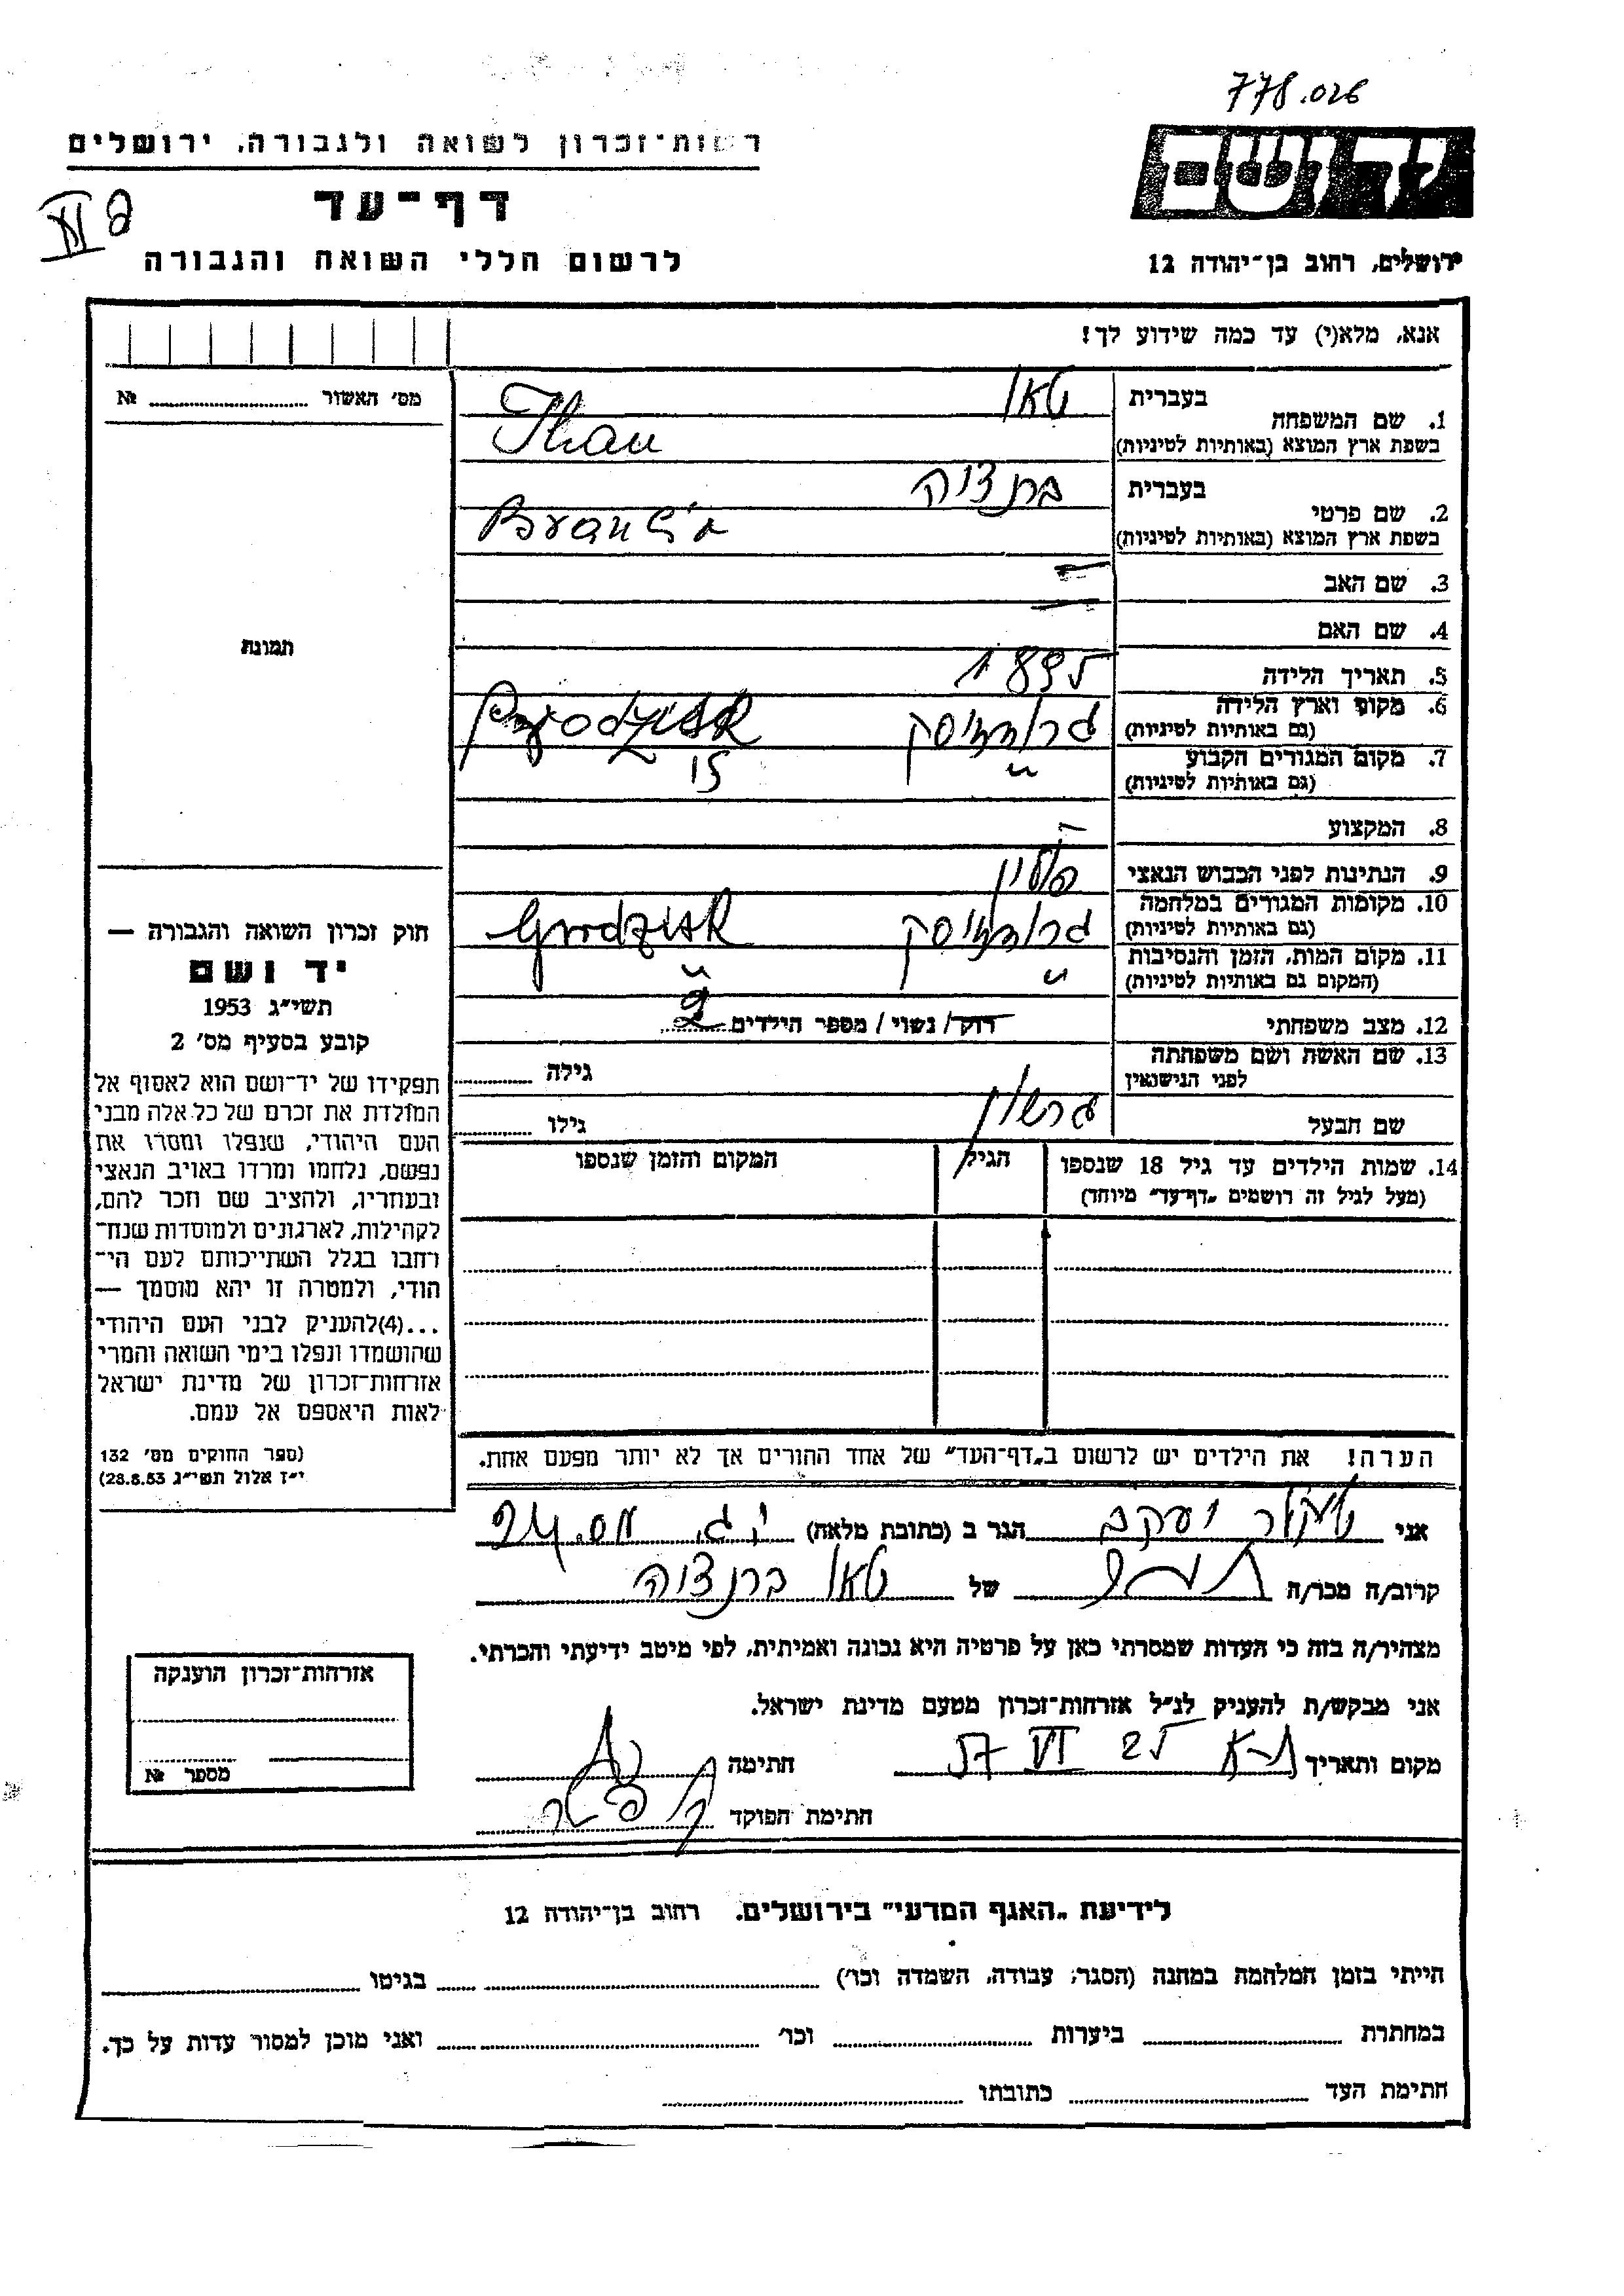 778.026
רשות־זכרון לשואה ולגבורה, ירושלים
דף־עד
לרשום חללי השואה והגבורה
ידושם
ירושלים, רחוב בן־יהודה 12
אנא, מלא(י) עד כמה שידוע לך!
מס׳ האשור № 
תמונת
חוק זכרון השואה והגבורה —
יד ושם
תשי״ג 1953
קובע בסעיף מס׳ 2
תפקידו של יד־ושם הוא לאסוף אל
המולדת את זכרם של כל אלה מבני
העם היהודי, שנפלו ומסרו את
נפשם, נלחמו ומרדו באויב הנאצי
ובעוזריו, ולהציב שם וזכר להם,
לקהילות, לארגונים ולמוסדות שנח־
רחבו בגלל השתייכותם לעם הי־
הודי, ולמטרה זו יהא מוסמך —
...(4)להעניק לבני העם היהודי
שהושמדו ונפלו בימי השואה והמרי
אזרחות־זכרון של מדינת ישראל
לאות היאספם אל עמם.
(ספר החוקים מס׳ 132
י״ז אלול תשי״ג 28.8.53)
1. שם המשפחה
בעברית טאו
בשפת ארץ המוצא (באותיות לטיניות) Thau
2. שם פרטי
בעברית ברנדזיה
בשפת ארץ המוצא (באותיות לטיניות)
3. שם האב —
4. שם האם —
5. תאריך הלידה 1895
6. מקום וארץ הלידה
(גם באותיות לטיניות)
7. מקום המגורים הקבוע
(גם באותיות לטיניות)
8. המקצוע —
9. הנתינות לפני הכבוש הנאצי פולין
10. מקומות המגורים במלחמה Grodzisk
(גם באותיות לטיניות)
11. מקום המות, הזמן והנסיבות
(המקום גם באותיות לטיניות)
12. מצב משפחתי רוק/ נשוי/ מספר הילדים 2
13. שם האשה ושם משפחתה
לפני הנישואין
גילה
שם הבעל גרשון גילו
14. שמות הילדים עד גיל 18 שנספו הגיל המקום והזמן שנספו
(מעל לגיל זה רושמים „דף־עד״ מיוחד)
הערה! את הילדים יש לרשום ב„דף־העד״ של אחד ההורים אך לא יותר מפעם אחת.
אני יעקב הגר ב (כתובת מלאה)
קרוב/ה מכר/ה של טאו ברנדזיה
מצהיר/ה בזה כי העדות שמסרתי כאן על פרטיה היא נכונה ואמיתית, לפי מיטב ידיעתי והכרתי.
אני מבקש/ת להעניק לנ״ל אזרחות־זכרון מטעם מדינת ישראל.
מקום ותאריך ת־א 25 VI 57 חתימה
חתימת הפוקד
אזרחות־זכרון הוענקה
מספר №
לידיעת „האגף המדעי״ בירושלים, רחוב בן־יהודה 12
הייתי בזמן המלחמה במחנה (הסגר, עבודה, השמדה וכו׳) בגיטו
במחתרת ביערות וכו׳ ואני מוכן למסור עדות על כך.
חתימת העד כתובתו